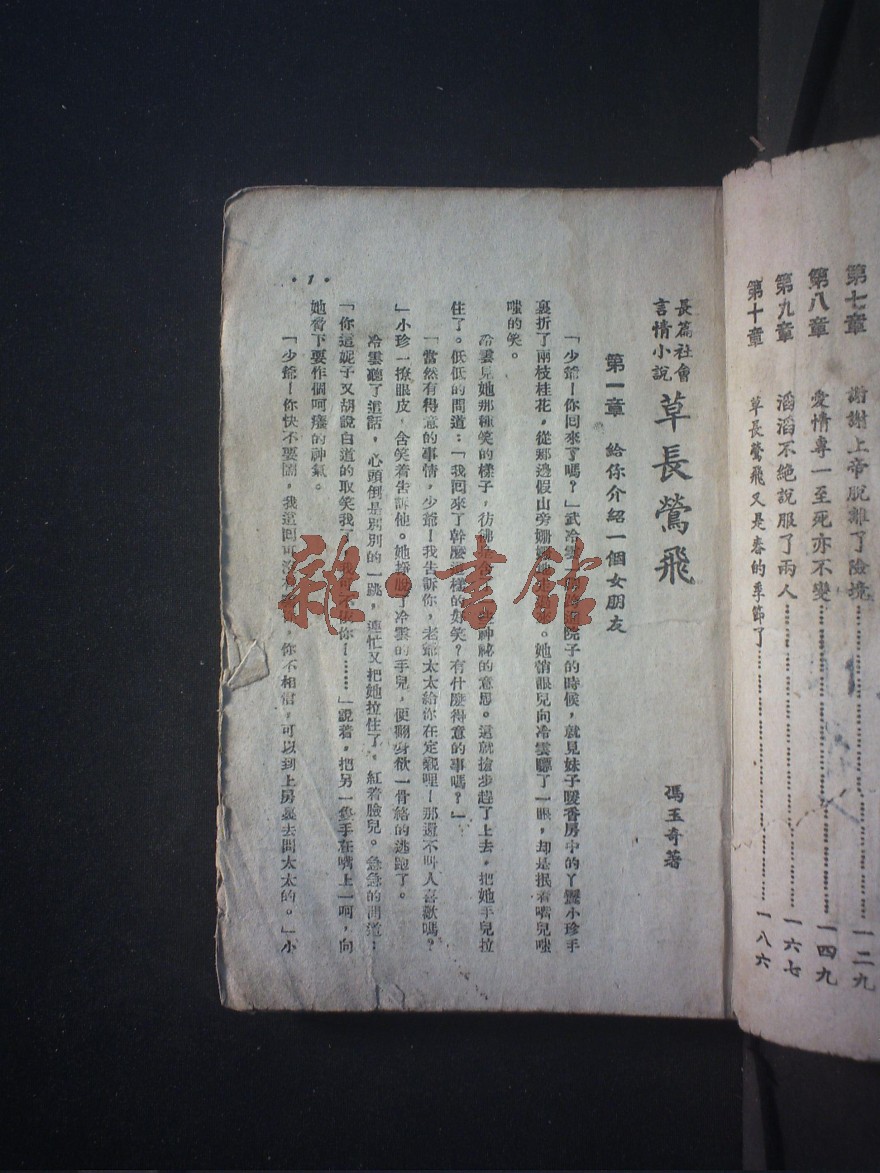 第七章 謝謝上帝脫離了險境……一二九
第八章 愛情專一至死亦不變……一四九
第九章 滔滔不絕說服了兩人……一六七
第十章 草長鶯飛又是春的季節了……一八六
長篇社會
言情小說
草長鶯飛
馮玉奇著
第一章 給你介紹一個女朋友
「少爺！你回來了嗎？」武冷雲院子的時候，就見妹子暖香房中的丫鬟小珍手
裏折了兩枝桂花，從那邊假山旁姍姍。她悄眼兒向冷雲瞟了一眼，却是抿着嘴兒嗤
嗤的笑。
冷雲見她那種笑的樣子，彷彿神祕的意思。這就搶步趕了上去，把她手兒拉
住了。低低的問道：「我回來了幹麼這樣的好笑？有什麼得意的事嗎？」
「當然有得意的事情，少爺！我告訴你，老爺太太給你在定親哩！那還不叫人喜歡嗎？
」小珍一撩眼皮，含笑着告訴他。她掙脫了冷雲的手兒，便翻身欲一骨絡的逃跑了。
冷雲聽了這話，心頭倒是別別的一跳，連忙又把她拉住了，紅着臉兒。急急的問道：
「你這妮子又胡說白道的取笑我了你！……」說着，把另一隻手在嘴上一呵，向
她脅下要作個呵癢的神氣。
「少爺！你快不要鬧，我這回可沒，你不相信，可以到上房裏去問太太的。」小
•1•
雜·書館